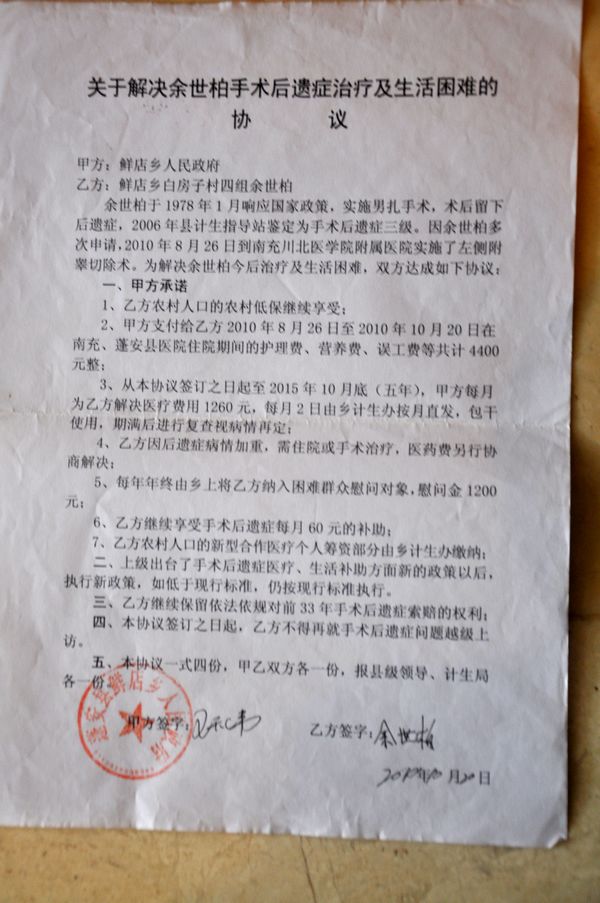 关于解决余世柏手术后遗症治疗及生活困难的
协 议
甲方：鲜店乡人民政府
乙方：鲜店乡白房子村四组余世柏
余世柏于1978年1月响应国家政策，实施男扎手术，术后留下
后遗症，2006年县计生指导站鉴定为手术后遗症三级。因余世柏多
次申请，2010年8月26日到南充川北医学院附属医院实施了左侧附
睾切除术。为解决余世柏今后治疗及生活困难，双方达成如下协议：
一、甲方承诺
1、乙方农村人口的农村低保继续享受；
2、甲方支付给乙方2010年8月26日至2010年10月20日在
南充、蓬安县医院住院期间的护理费、营养费、误工费等共计4400
元整；
3、从本协议签订之日起至2015年10月底（五年），甲方每月
为乙方解决医疗费用1260元，每月2日由乡计生办按月直发，包干
使用，期满后进行复查视病情再定；
4、乙方因后遗症病情加重，需住院或手术治疗，医药费另行协
商解决；
5、每年年终由乡上将乙方纳入困难群众慰问对象，慰问金1200
元；
6、乙方继续享受手术后遗症每月60元的补助；
7、乙方农村人口的新型合作医疗个人筹资部分由乡计生办缴纳；
二、上级出台了手术后遗症医疗、生活补助方面新的政策以后，
执行新政策，如低于现行标准，仍按现行标准执行。
三、乙方继续保留依法依规对前33年手术后遗症索赔的权利；
四、本协议签订之日起，乙方不得再就手术后遗症问题越级上
访。
五、本协议一式四份，甲乙双方各一份，报县级领导、计生局
各一份
甲方签字：
乙方签字：余世柏
月20日
蓬安县鲜店乡人民政府